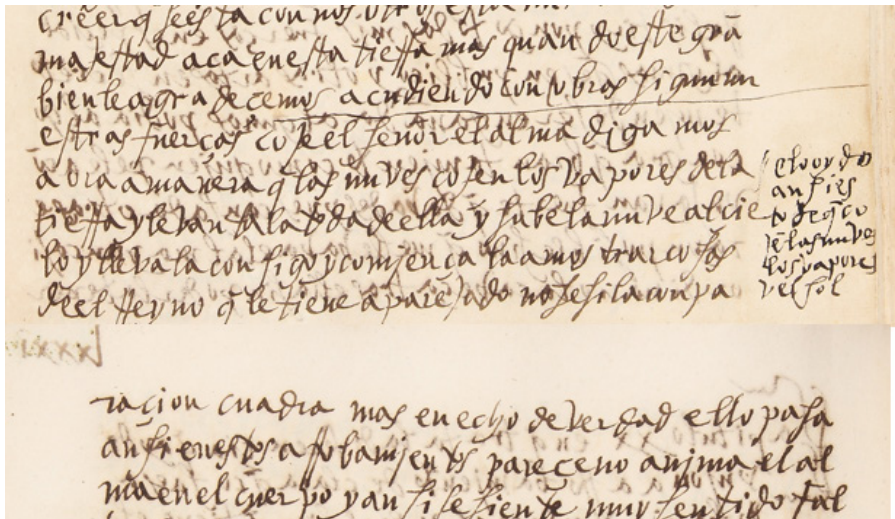 creer q se esta con nos otros
majestad aca en esta tieRa mas quando este grā
bien le agradecemos acudiendo con obras sigun nu
estras fuerças coje el señor el alma digamos
aora a manera q las nuves cojen los vapores de la
tieRa y levantala toda de ella y sube la nuve al cie
lo y llevala consigo y comjença la a mostrar cosas
de el Reyno q le tiene aparejado no se si la conpa
e lo oydo
ansi es
to de q co
jē las nuves
los vapores
v el sol
lxxxi
racion cuadra mas en echo de verdad ello pasa
ansi en estos aRobamjentos parece no anima el al
ma en el cuerpo y ansi se siente muy sentido fal